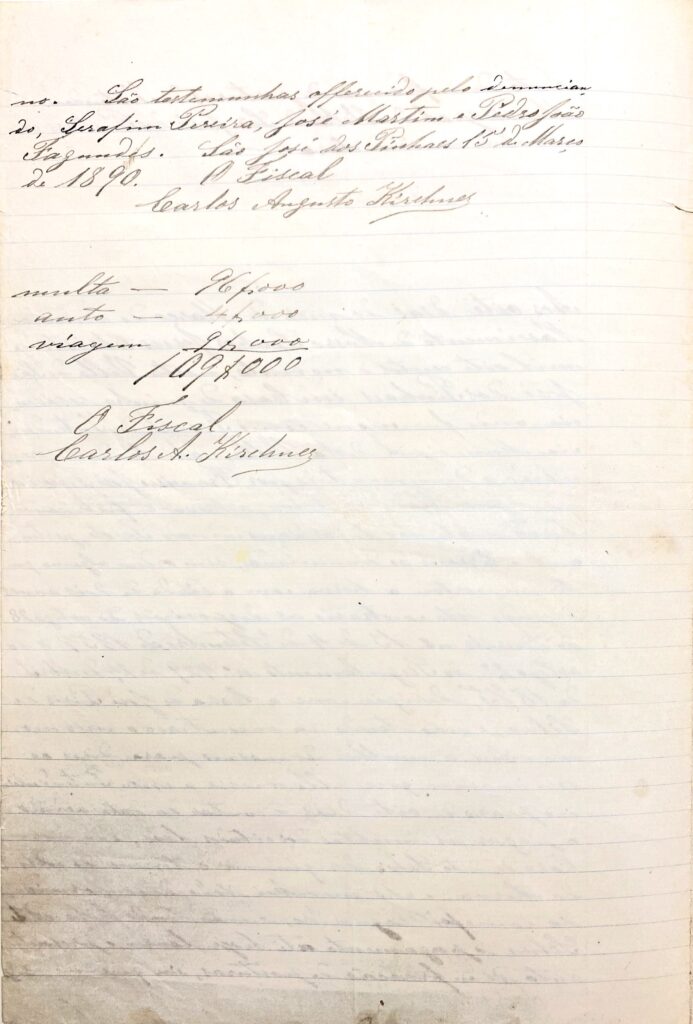 no. São testemunhas offerecido pelo denuncian
do, Serafim Pereira, José Martim e Pedro João
Fagundes. São José dos Pinhaes 15 de Março
de 1890. O Fiscal
Carlos Augusto Kirchner
multa — 96$000
auto — 4$000
viagem 9$000
109$000
O Fiscal
Carlos A. Kirchner